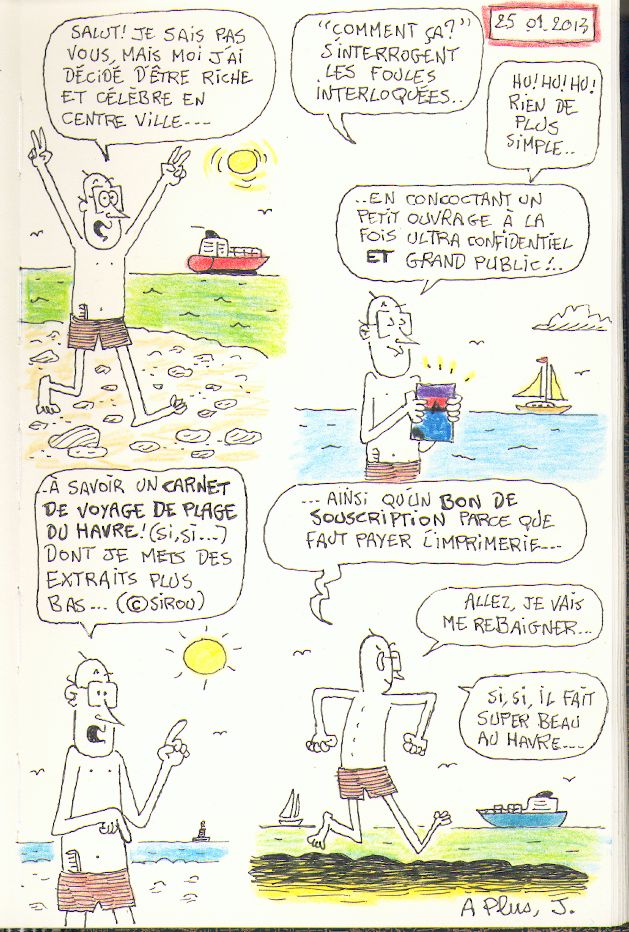 SALUT! JE SAIS PAS
VOUS, MAIS MOI J'AI
DÉCIDÉ D'ÊTRE RICHE
ET CÉLÈBRE EN
CENTRE VILLE----
"COMMENT ÇA?"
S'INTERROGENT
LES FOULES
INTERLOQUÉES..
25 01 2013
HU! HU! HU!
RIEN DE
PLUS
SIMPLE..
..EN CONCOCTANT UN
PETIT OUVRAGE À LA
FOIS ULTRA CONFIDENTIEL
ET GRAND PUBLIC!..
..À SAVOIR UN CARNET
DE VOYAGE DE PLAGE
DU HAVRE! (SI, SI...)
DONT JE METS DES
EXTRAITS PLUS
BAS... (©SIROU)
... AINSI QU'UN BON DE
SOUSCRIPTION PARCE QUE
FAUT PAYER L'IMPRIMERIE...
ALLEZ, JE VAIS
ME REBAIGNER...
SI, SI, IL FAIT
SUPER BEAU
AU HAVRE....
À Plus, J.